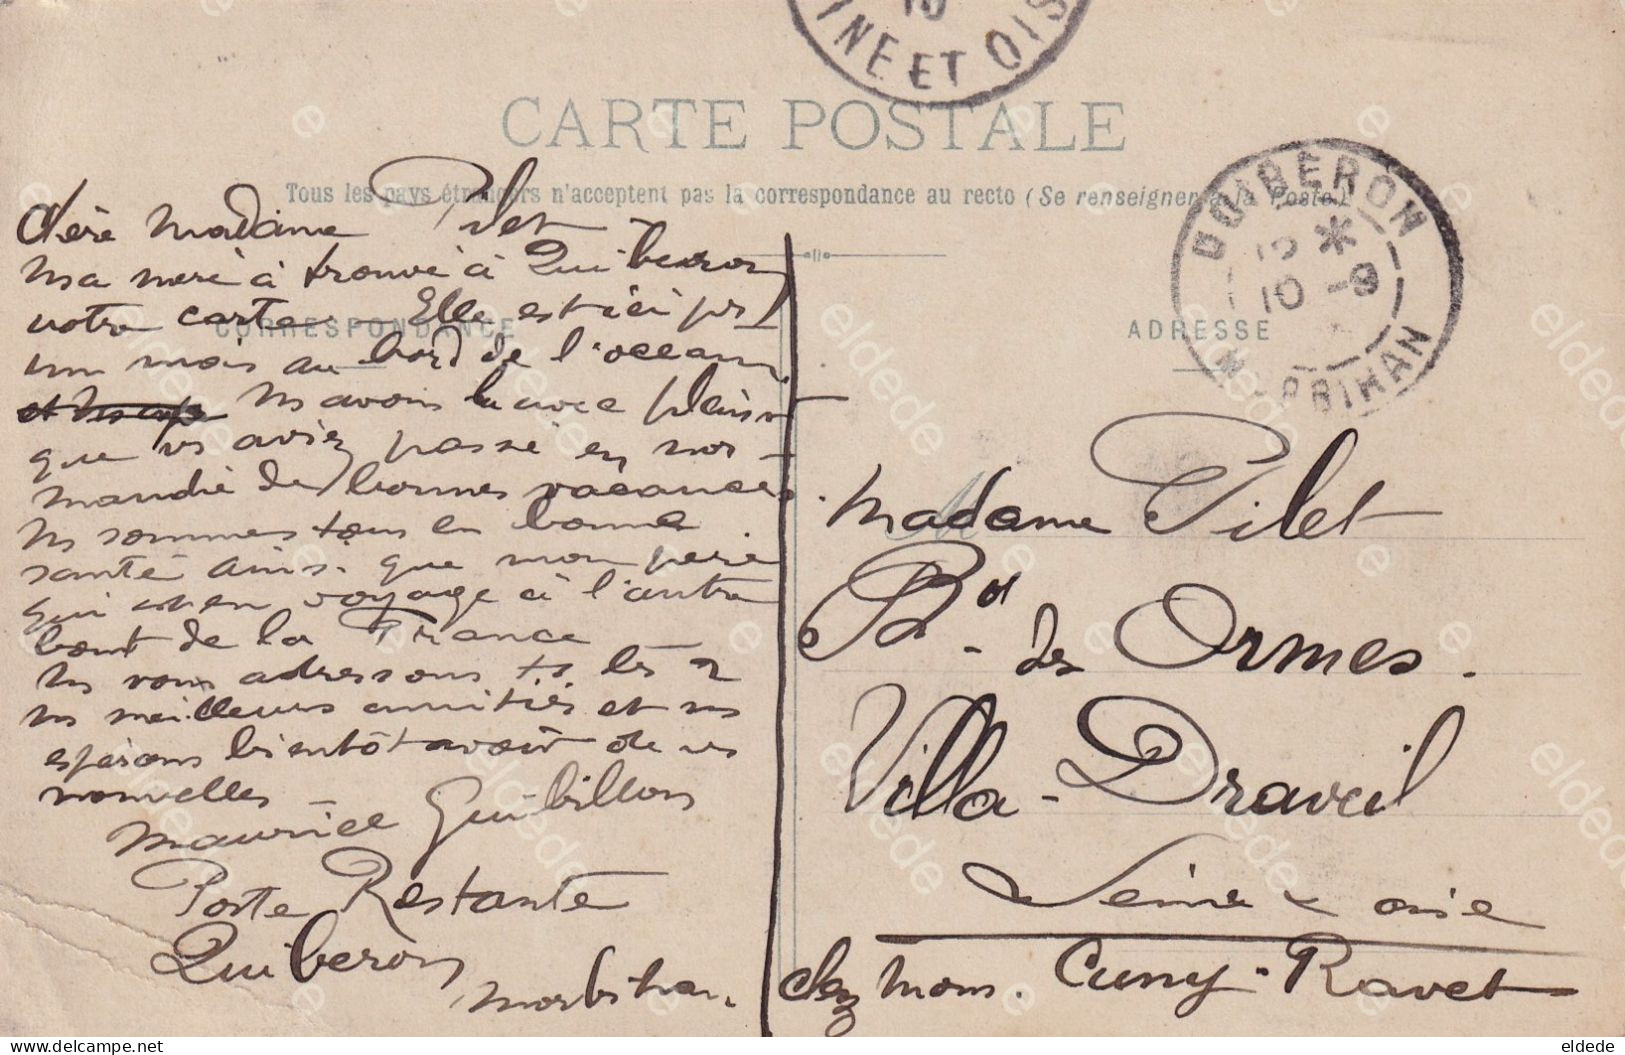 10
INE ET OIS
CARTE POSTALE
Tous les pays étrangers n'acceptent pas la correspondance au recto (Se renseigner à la Poste)
QUIBERON
10 -9
MORBIHAN
CORRESPONDANCE
ADRESSE
Chère Madame Pilet
Ma mère à trouvé à Quiberon
votre carte. Elle est ici pr
un mois au bord de l'ocean
Ns avons lu avec plaisir
que vs aviez passé en nor-
mandie de bonnes vacances
Ns sommes tous en bonne
santé ainsi que mon père
qui est en voyage à l'autre
bout de la France
Ns vous adressons ts les 2
nos meilleurs amitiés et ns
espérons bientôt avoir de vs
nouvelles
Maurice Guibillon
Poste Restante
Quiberon
Morbihan.
Madame Pilet
Bd. des Ormes.
Villa-Draveil
Seine & oise
chez Mons. Cuny-Ravet
eldede